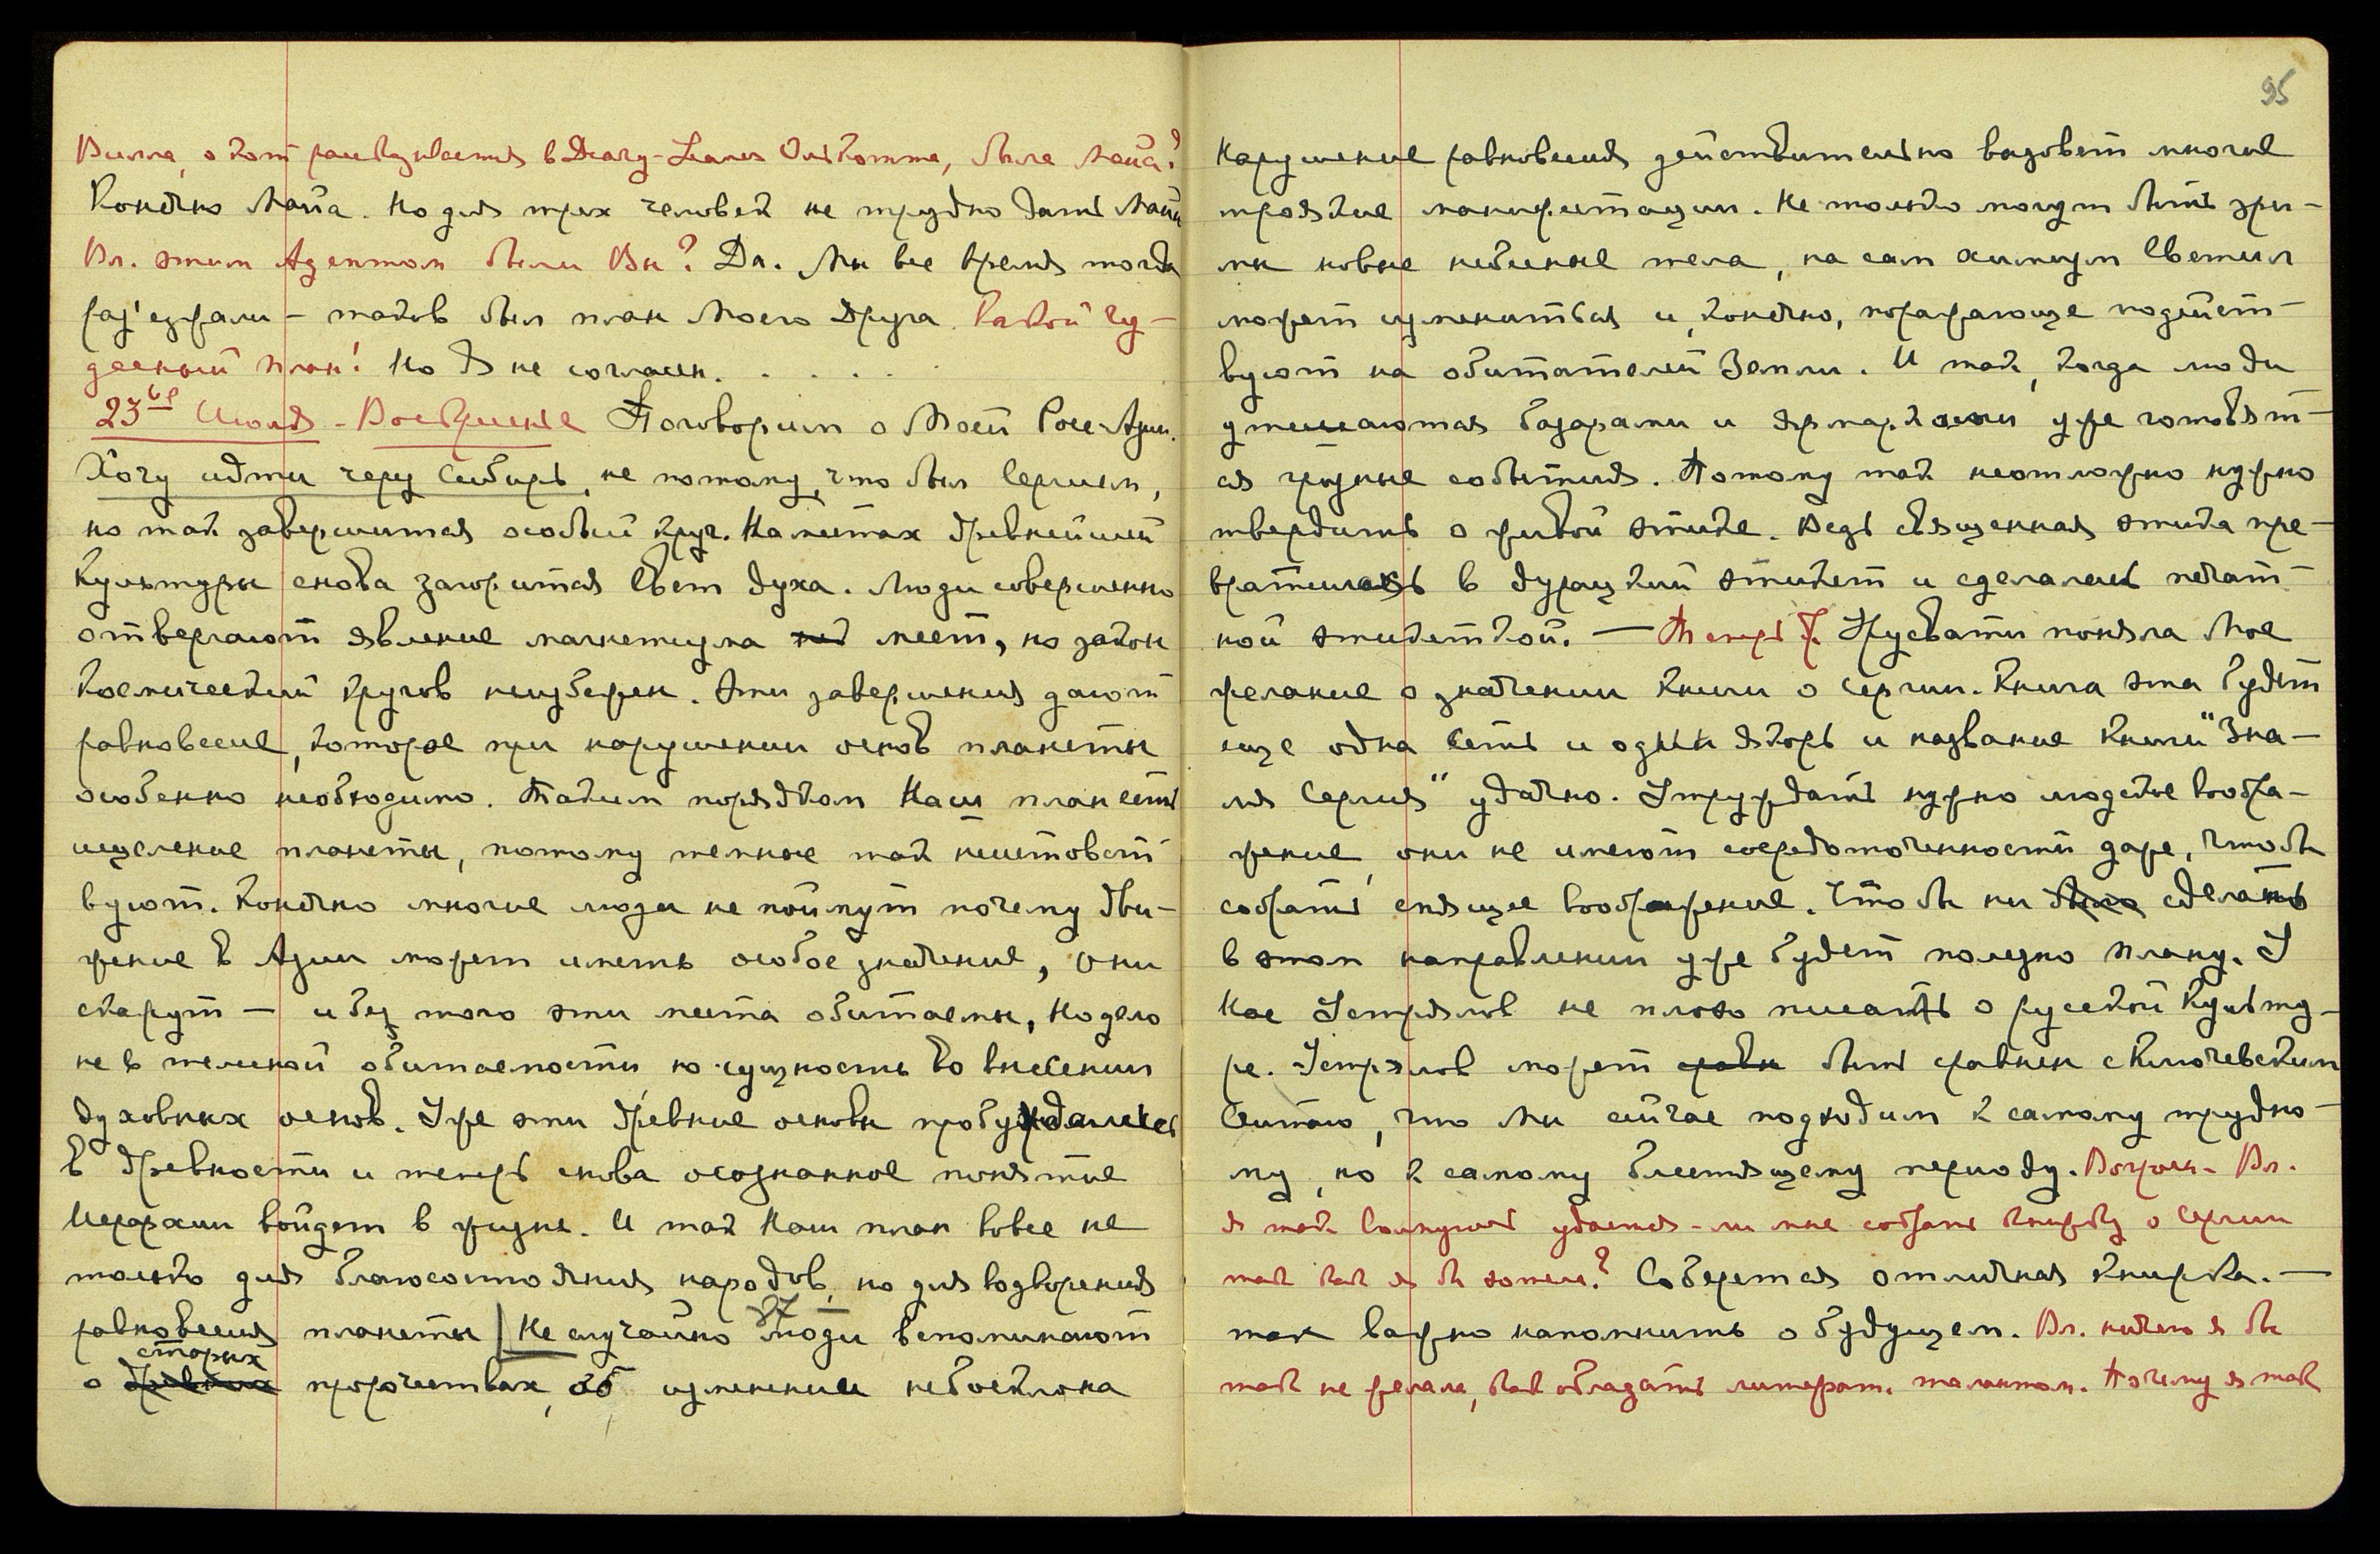 Вилла, о кот рассказывается в Diary-Leaves Олькотта, была Майа?
Конечно Майа. Но для трех человек не трудно дать Майю
Вл. этим Адептом были Вы? Да. Мы все время тогда
разъезжали – таков был план Моего Друга. Какой чу-
десный план! Но Я не согласен. . . . .
23ье Июля - Воскрщенье Поговорим о Моей Росс-Азии.
Хочу идти через Сибирь, не потому, что был Сергием,
но так завершится особый круг. На местах древнейшей
культуры снова загорится Свет духа. Люди совершенно
отвергают явление магнетизма мест, но закон
космический кругов неизбежен. Эти завершения дают
равновесие, которое при нарушении основ планеты
особенно необходимо. Таким порядком Наш план есть
исцеление планеты, потому темные так неистовст-
вуют. Конечно многие люди не поймут почему дви-
жение в Азии может иметь особое значение, они
скажут – и без того эти места обитаемы, но дело
не в телесной обитаемости, но сущность во внесении
духовных основ. Уже эти древние основы пробуждались
в древности и теперь снова осознанное понятие
Иерархии войдет в жизнь. И так Наш план вовсе не
только для благосостояния народов, но для водворения
равновесия планеты | Не случайно 87 люди вспоминают
о древних старых пророчествах, об изменении небосклона
95
Нарушение равновесия действительно вызовет многие
тройские манифестации. Не только могут быть зри-
мы новые небесные тела, но сам химизм Светил
может измениться и, конечно, поражающе подейст-
вуют на обитателей Земли. И так, когда люди
утешаются базарами и ярмарками уже готовят-
ся грозные события. Потому так неотложно нужно
твердить о живой этике. Ведь священная этика пре-
вратилась в дурацкий этикет и сделалась печат-
ной этикеткой. — Теперь Урусвати поняла Мое
желание о значении книги о Сергии. Книга эта будет
еще одна сеть и один якорь и название книги "Зна-
мя Сергия" удачно. Утруждать нужно людское вообра-
жение, они не имеют сосредоточенности даже, чтобы
собрать спящее воображение. Что бы ни было сделать
в этом направлении уже будет полезно плану. У
Нас Устрялов не плохо писать о русской культу-
ре. Устрялов может равн быть сравнен с Ключевским
Считаю, что Мы сейчас подходим к самому трудно-
му, но к самому блестящему периоду. Вогрось- Вл.
я так волнуюсь удастся-ли мне собрать книжку о Сергии
так как я бы хотела? Соберется отличная книжка. —
так важно напомнить о будущем. Вл. ничего я бы
так не желала, как обладать литерат. талантом. Почему я так